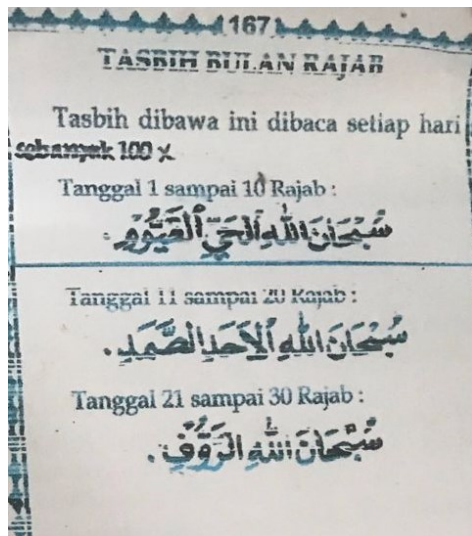 167
TASBIH BULAN RAJAB
Tasbih dibawa ini dibaca setiap hari
sebanyak 100 x
Tanggal 1 sampai 10 Rajab :
سُبْحَانَ اللّٰهِ الْحَيِّ الْقَيُّوْمِ .
Tanggal 11 sampai 20 Rajab :
سُبْحَانَ اللّٰهِ الْاَحَدِ الصَّمَدِ .
Tanggal 21 sampai 30 Rajab :
سُبْحَانَ اللّٰهِ الرَّؤُفِ .